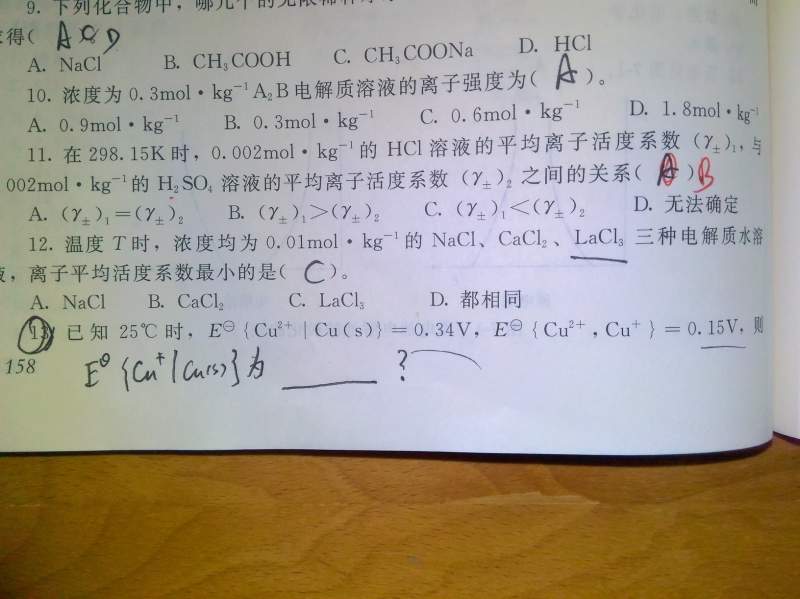 9. 下列化合物中，哪几个的无限稀释
求得( A C D
A. NaCl B. CH₃COOH C. CH₃COONa D. HCl
10. 浓度为 0.3mol·kg⁻¹A₂B电解质溶液的离子强度为( A )。
A. 0.9mol·kg⁻¹ B. 0.3mol·kg⁻¹ C. 0.6mol·kg⁻¹ D. 1.8mol·kg⁻¹
11. 在 298.15K 时，0.002mol·kg⁻¹的 HCl 溶液的平均离子活度系数 (γ±)₁，与
002mol·kg⁻¹的 H₂SO₄ 溶液的平均离子活度系数 (γ±)₂ 之间的关系( A ) B
A. (γ±)₁=(γ±)₂ B. (γ±)₁>(γ±)₂ C. (γ±)₁<(γ±)₂ D. 无法确定
12. 温度 T 时，浓度均为 0.01mol·kg⁻¹的 NaCl、CaCl₂、LaCl₃ 三种电解质水溶
液，离子平均活度系数最小的是( C )。
A. NaCl B. CaCl₂ C. LaCl₃ D. 都相同
13. 已知 25℃时，E⊖{Cu²⁺|Cu(s)}=0.34V，E⊖{Cu²⁺,Cu⁺}=0.15V，则
158 E⊖{Cu⁺|Cu(s)}为 ______ ?